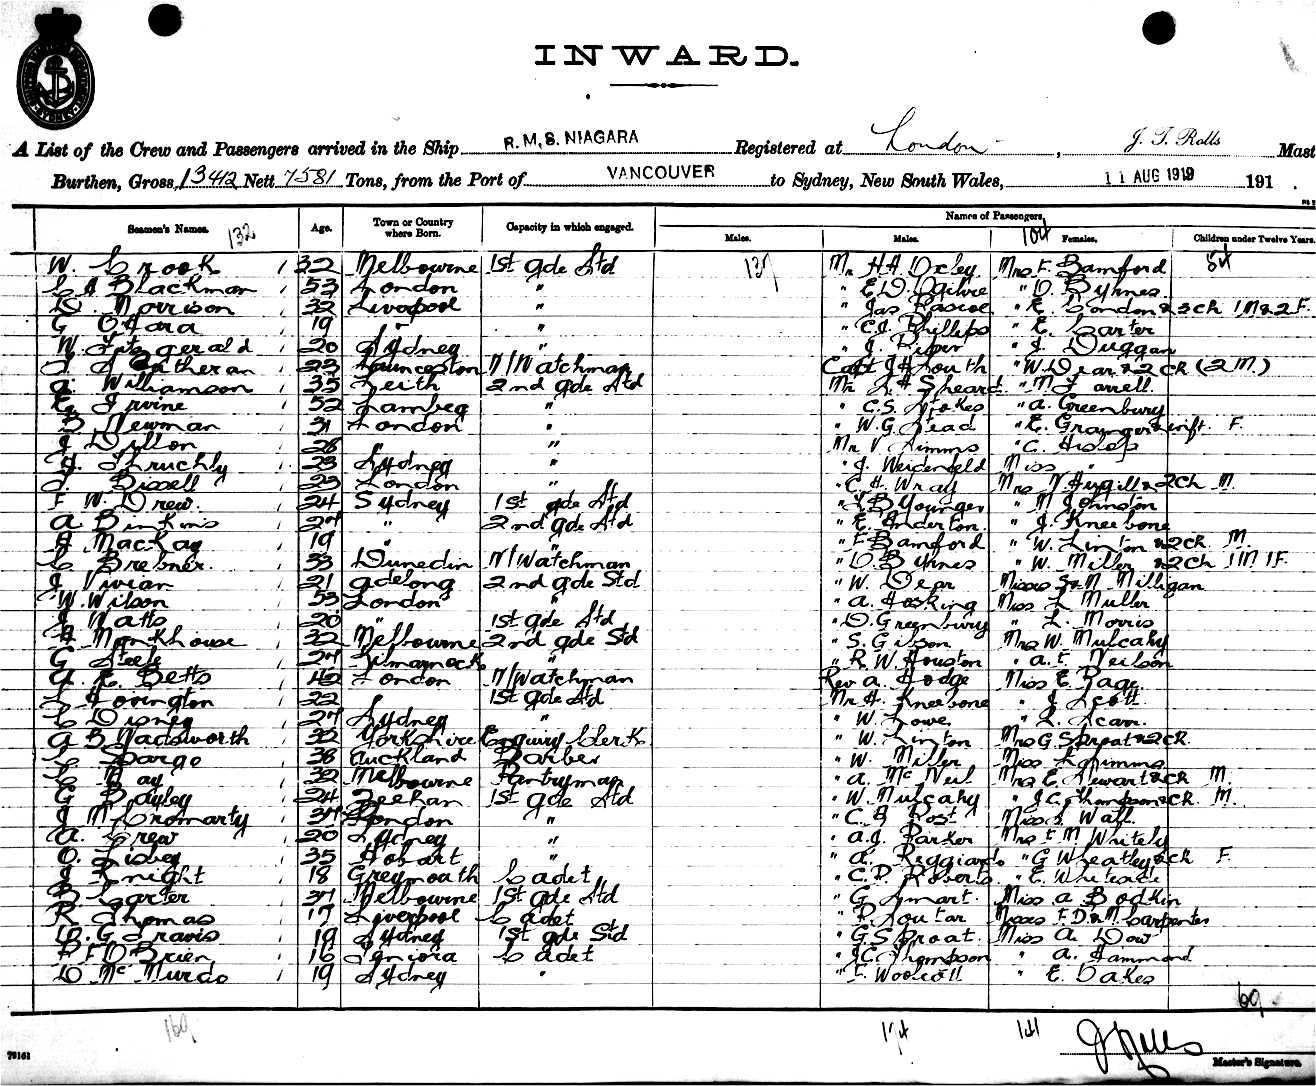 INWARD.
A List of the Crew and Passengers arrived in the Ship R.M.S. NIAGARA Registered at London, J. T. Rolls Mast
Burthen, Gross, 13412 Nett 7581 Tons, from the Port of VANCOUVER to Sydney, New South Wales, 11 AUG 1919 191 .
Names of Passengers,
Seamen's Names. 132 Age. Town or Country where Born. Capacity in which engaged. Males. Males. 104 Females, Children under Twelve Years.
W. Crook 1 32 Melbourne 1st gde Std 137 Mr HA Oxley Mrs F. Bamford 54
C J Blackman 1 53 London " " E D. Ogilvie " O Byrnes
D. Morrison 1 32 Liverpool " " Jas Pascoe " E. London & 3 ch 1 M & 2 F.
G OHara 1 19 " " " C.J. Phillips " E. Carter
W. Fitzgerald 1 20 Sydney " " J. Piper " J. Duggan
23 Launceston N/Watchman Capt J H South " W. Dear & 2 ch (2 M.)
A. Williamson 1 35 Leith 2nd gde Std Mr L H Sheard " M Farrell.
E. Irvine 1 52 Lambeg " " C.S. Stokes " A. Greenbury
B Newman 1 31 London " " W.G Stead " E. Grainger & inft. F.
J Dillon 1 28 " " Mr V Simms " C. Hislop
J. Struchly 1 23 Sydney " " J. Weidenfeld Miss "
J. Bissell 1 23 London " " C. H. Wray Mrs V Hugill & 2 ch M.
F W. Drew 1 24 Sydney 1st gde Std " B Younger " M Johnston
A Binkins 1 27 " 2nd gde Std " E. Anderton. " J. Kneebone
A MacKay 1 19 " " " F Bamford " W. Linton & 2 ch M.
C Brebner. 1 33 Dunedin N/Watchman " O. Byrnes " W. Miller & 2 ch 1 M 1 F.
J Vivian 1 21 Adelong 2nd gde Std " W. Dear Misses S & M Milligan
W. Wilson 1 53 London " " A. Hosking Miss L Muller
J Watts 1 20 " 1st gde Std " O. Greenbury " L. Morris
H Monkhouse 1 32 Melbourne 2nd gde Std " S. Gibson Mrs W. Mulcahy
G Steele 1 27 Kilmarnock " " R. W. Houston " A. E. Neilson
A. E. Betts 1 42 London N/Watchman Rev A. Hodge Miss E. Page
Lovington 1 22 " 1st gde Std Mr H. Kneebone " J Scott
C Disney 1 27 Sydney " " W. Lowe " L. Scarr.
A B Wadsworth 1 32 Yorkshire Enquiry Clerk " W. Linton Mrs G. Sproat & 2 ch.
C Dargo 1 38 Auckland Barber " W. Miller Miss L Simms
C Hay 1 32 Melbourne Pantryman " A. McNeil Mrs E. Stewart & ch M.
G Bayley 1 24 Zeehan 1st gde Std " W. Mulcahy " J.C. Thompson & ch. M.
J McCromarty 1 37 London " " C. B Post Miss Wall
A. Crew 1 20 Sydney " " A.J. Parker Mrs E M Whitely
O. Livey 1 35 Hobart " " A. Reggiardo " G Wheatley & ch F.
J Knight 1 18 Greymouth Cadet " C. P. Roberts " E. Whiteside
B Carter 1 37 Melbourne 1st gde Std " G Smart. Miss A Bodkin
R Thomas 1 17 Liverpool Cadet " P. Soutar Misses F. D & M. Carpenter
W. G Travis 1 19 Sydney 1st gde Std " G.S Sproat. Miss A. Dow
P. F. O'Brien 1 16 Cadet " J.C. Thompson " A. Hammond
D McMurdo 1 19 Sydney " " F. Woolcott " E. Oakes
69
169 174 141
79161
J Rolls
Master's Signature.